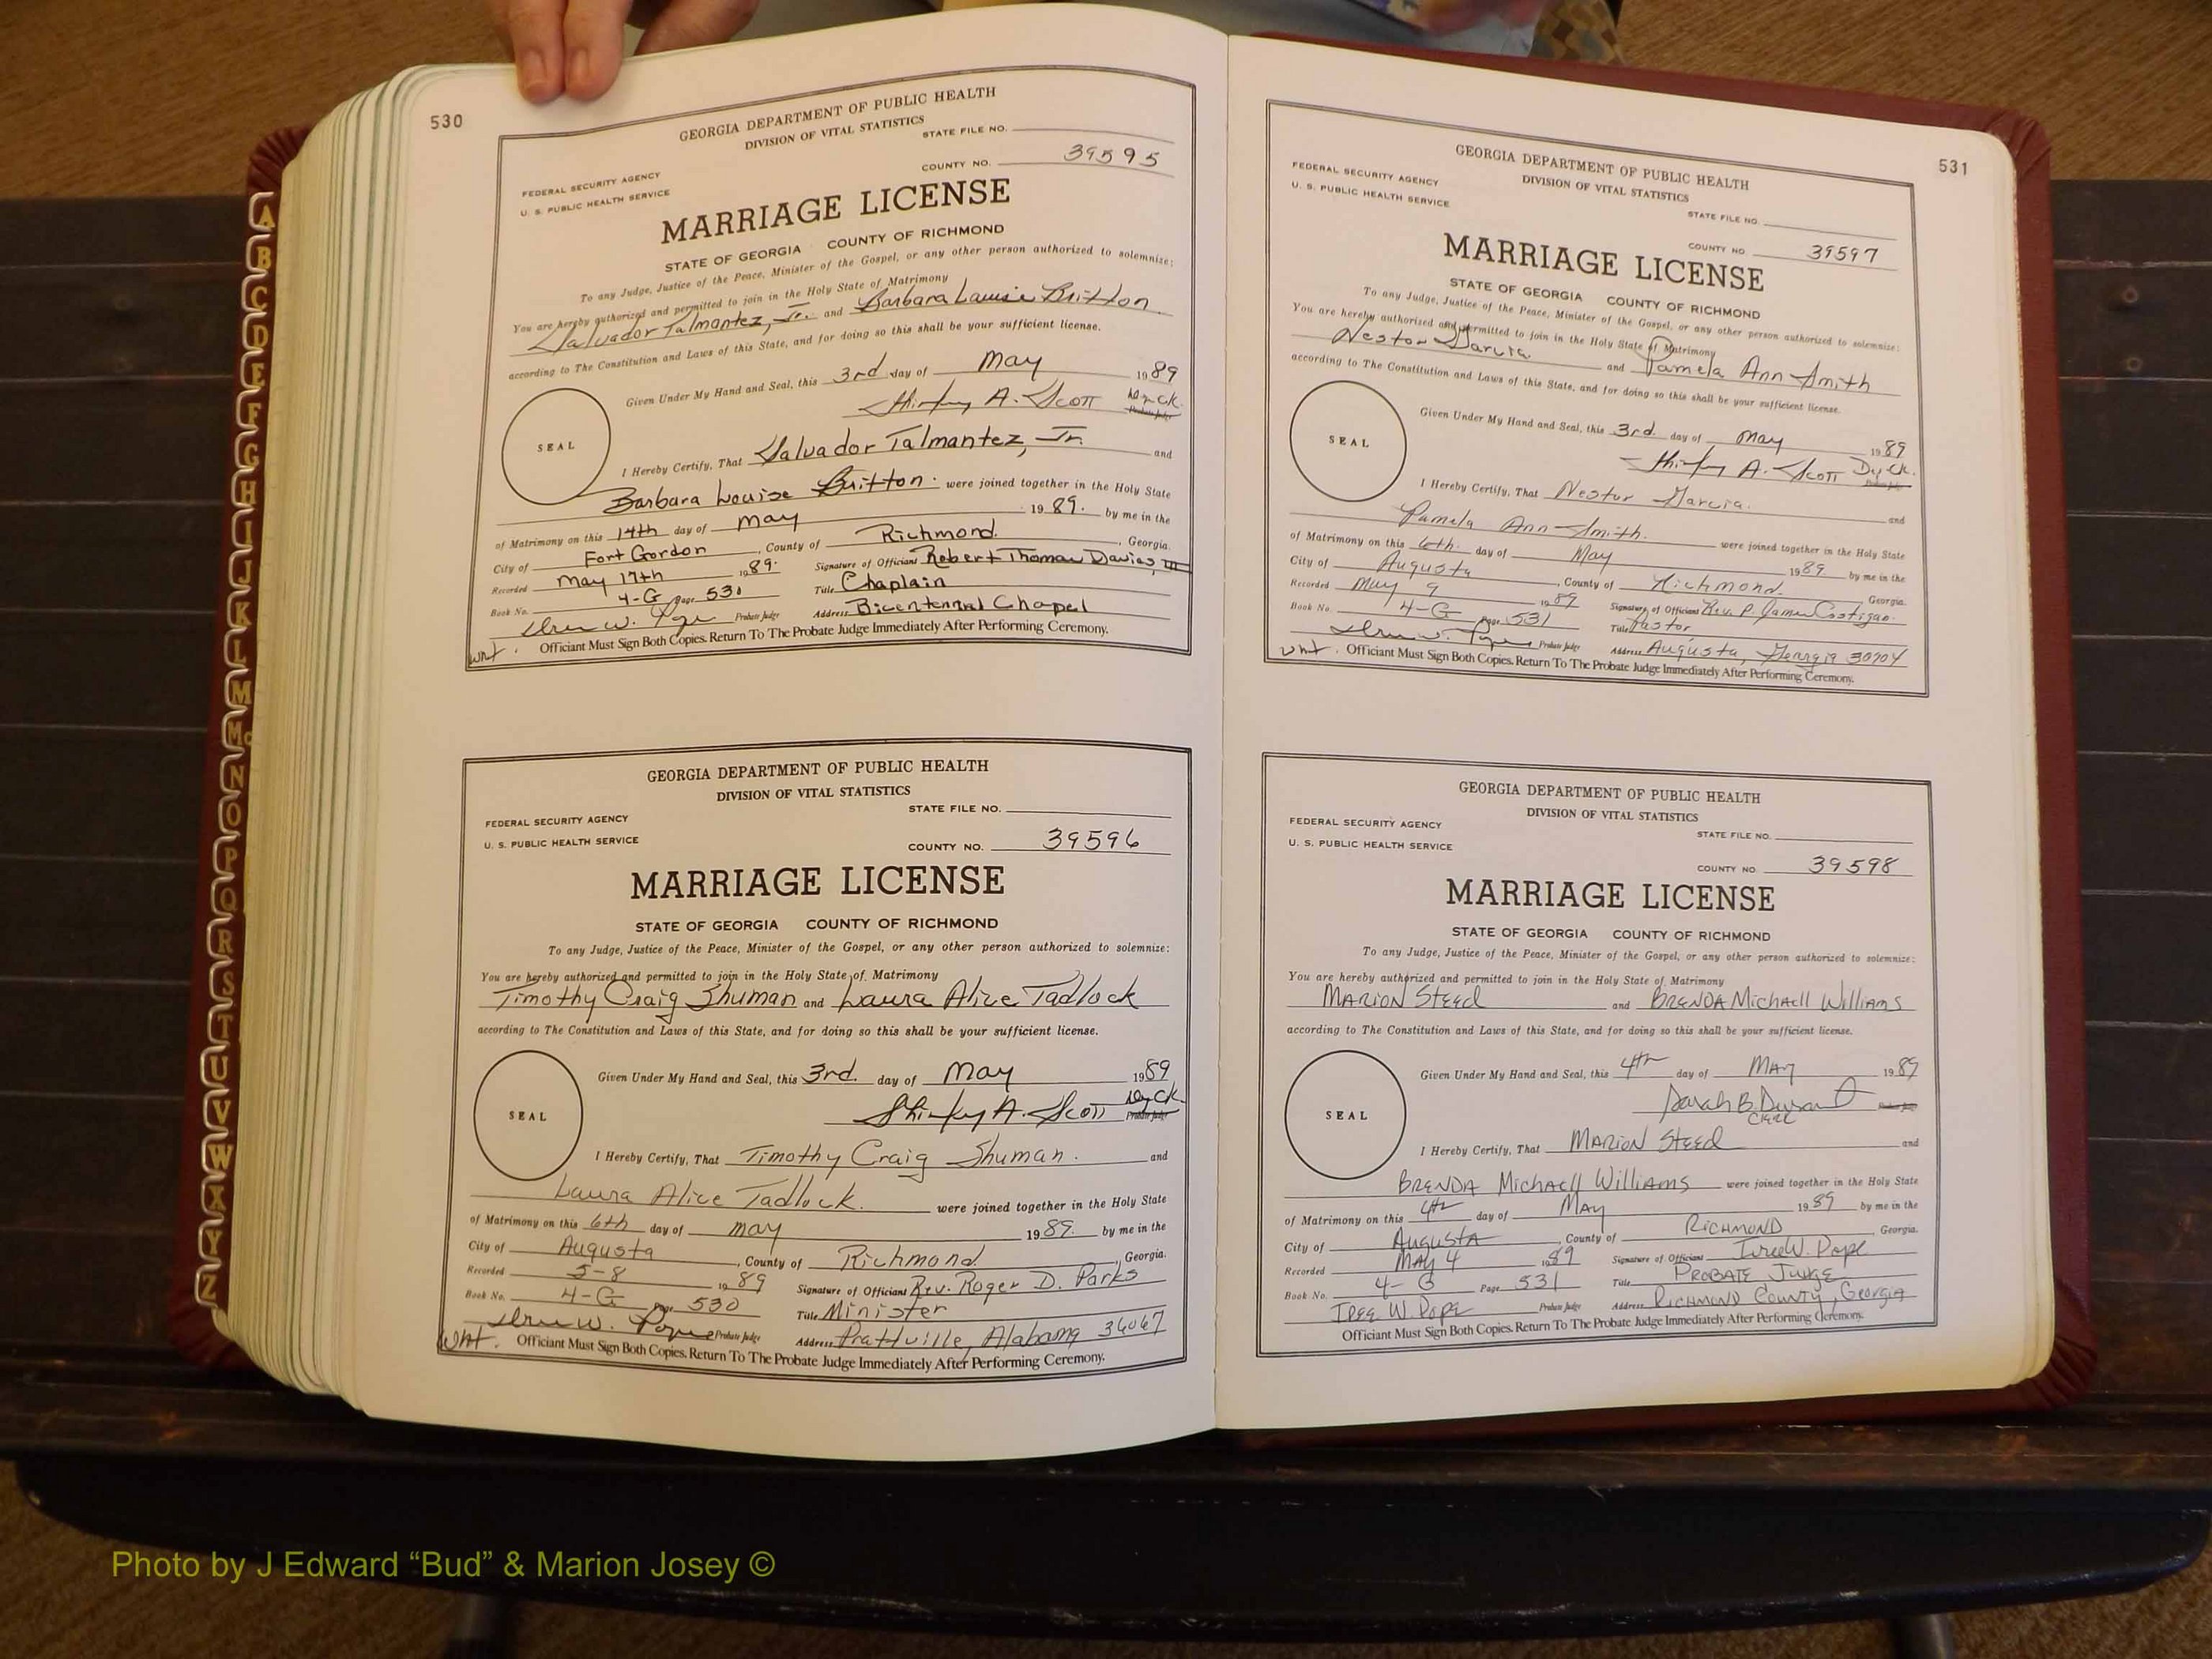 530
GEORGIA DEPARTMENT OF PUBLIC HEALTH
DIVISION OF VITAL STATISTICS
STATE FILE NO.
COUNTY NO. 39595
FEDERAL SECURITY AGENCY
U. S. PUBLIC HEALTH SERVICE
MARRIAGE LICENSE
STATE OF GEORGIA COUNTY OF RICHMOND
To any Judge, Justice of the Peace, Minister of the Gospel, or any other person authorized to solemnize:
You are hereby authorized and permitted to join in the Holy State of Matrimony
Salvador Talmantez, Jr. and Barbara Louise Britton
according to The Constitution and Laws of this State, and for doing so this shall be your sufficient license.
Given Under My Hand and Seal, this 3rd day of May 1989
Shirley A. Scott Dy Ck. Probate Judge
SEAL
I Hereby Certify, That Salvador Talmantez, Jr. and
Barbara Louise Britton. were joined together in the Holy State
of Matrimony on this 14th day of May 1989. by me in the
City of Fort Gordon, County of Richmond. Georgia.
Recorded May 17th 1989. Signature of Officiant Robert Thomas Davies, III
Book No. 4-G Page 530 Title Chaplain
Probate Judge Address Bicentennial Chapel
wnt. Officiant Must Sign Both Copies. Return To The Probate Judge Immediately After Performing Ceremony.
GEORGIA DEPARTMENT OF PUBLIC HEALTH
DIVISION OF VITAL STATISTICS
STATE FILE NO.
FEDERAL SECURITY AGENCY
U. S. PUBLIC HEALTH SERVICE
COUNTY NO. 39596
MARRIAGE LICENSE
STATE OF GEORGIA COUNTY OF RICHMOND
To any Judge, Justice of the Peace, Minister of the Gospel, or any other person authorized to solemnize:
You are hereby authorized and permitted to join in the Holy State of Matrimony
Timothy Craig Shuman and Laura Alice Tadlock
according to The Constitution and Laws of this State, and for doing so this shall be your sufficient license.
Given Under My Hand and Seal, this 3rd. day of May 1989
Shirley A. Scott Dy Ck. Probate Judge
SEAL
I Hereby Certify, That Timothy Craig Shuman. and
Laura Alice Tadlock. were joined together in the Holy State
of Matrimony on this 6th day of May 1989. by me in the
City of Augusta, County of Richmond, Georgia.
Recorded 5-8 1989 Signature of Officiant Rev. Roger D. Parks
Book No. 4-G Page 530 Title Minister
Probate Judge Address Prattville, Alabama 36067
wnt. Officiant Must Sign Both Copies. Return To The Probate Judge Immediately After Performing Ceremony.
531
GEORGIA DEPARTMENT OF PUBLIC HEALTH
DIVISION OF VITAL STATISTICS
FEDERAL SECURITY AGENCY
U. S. PUBLIC HEALTH SERVICE
STATE FILE NO.
COUNTY NO. 39597
MARRIAGE LICENSE
STATE OF GEORGIA COUNTY OF RICHMOND
To any Judge, Justice of the Peace, Minister of the Gospel, or any other person authorized to solemnize:
You are hereby authorized and permitted to join in the Holy State of Matrimony
Nestor Garcia and Pamela Ann Smith
according to The Constitution and Laws of this State, and for doing so this shall be your sufficient license.
Given Under My Hand and Seal, this 3rd. day of May 1989
Shirley A. Scott Dy Ck.
SEAL
I Hereby Certify, That Nestor Garcia. and
Pamela Ann Smith. were joined together in the Holy State
of Matrimony on this 6th. day of May 1989. by me in the
City of Augusta, County of Richmond. Georgia.
Recorded May 9 1989 Signature of Officiant Rev. P. James Costigan.
Book No. 4-G Page 531 Title Pastor
Probate Judge Address Augusta, Georgia 30904
wnt. Officiant Must Sign Both Copies. Return To The Probate Judge Immediately After Performing Ceremony.
GEORGIA DEPARTMENT OF PUBLIC HEALTH
DIVISION OF VITAL STATISTICS
FEDERAL SECURITY AGENCY
STATE FILE NO.
U. S. PUBLIC HEALTH SERVICE
COUNTY NO. 39598
MARRIAGE LICENSE
STATE OF GEORGIA COUNTY OF RICHMOND
To any Judge, Justice of the Peace, Minister of the Gospel, or any other person authorized to solemnize:
You are hereby authorized and permitted to join in the Holy State of Matrimony
Marion Steed and Brenda Michaell Williams
according to The Constitution and Laws of this State, and for doing so this shall be your sufficient license.
Given Under My Hand and Seal, this 4th day of May 1989
Sarah B. Durand
Clerk
SEAL
I Hereby Certify, That Marion Steed and
Brenda Michaell Williams were joined together in the Holy State
of Matrimony on this 4th day of May 1989 by me in the
City of Augusta, County of Richmond Georgia.
Recorded May 4 1989 Signature of Officiant Iree W. Pope
Book No. 4-G Page 531 Title Probate Judge
Iree W. Pope Probate Judge Address Richmond County, Georgia
Officiant Must Sign Both Copies. Return To The Probate Judge Immediately After Performing Ceremony.
A
B
C
D
E
F
G
H
I
J
K
L
M
Mc
N
O
P
Q
R
S
T
U
V
W
X
Y
Z
Photo by J Edward “Bud” & Marion Josey ©